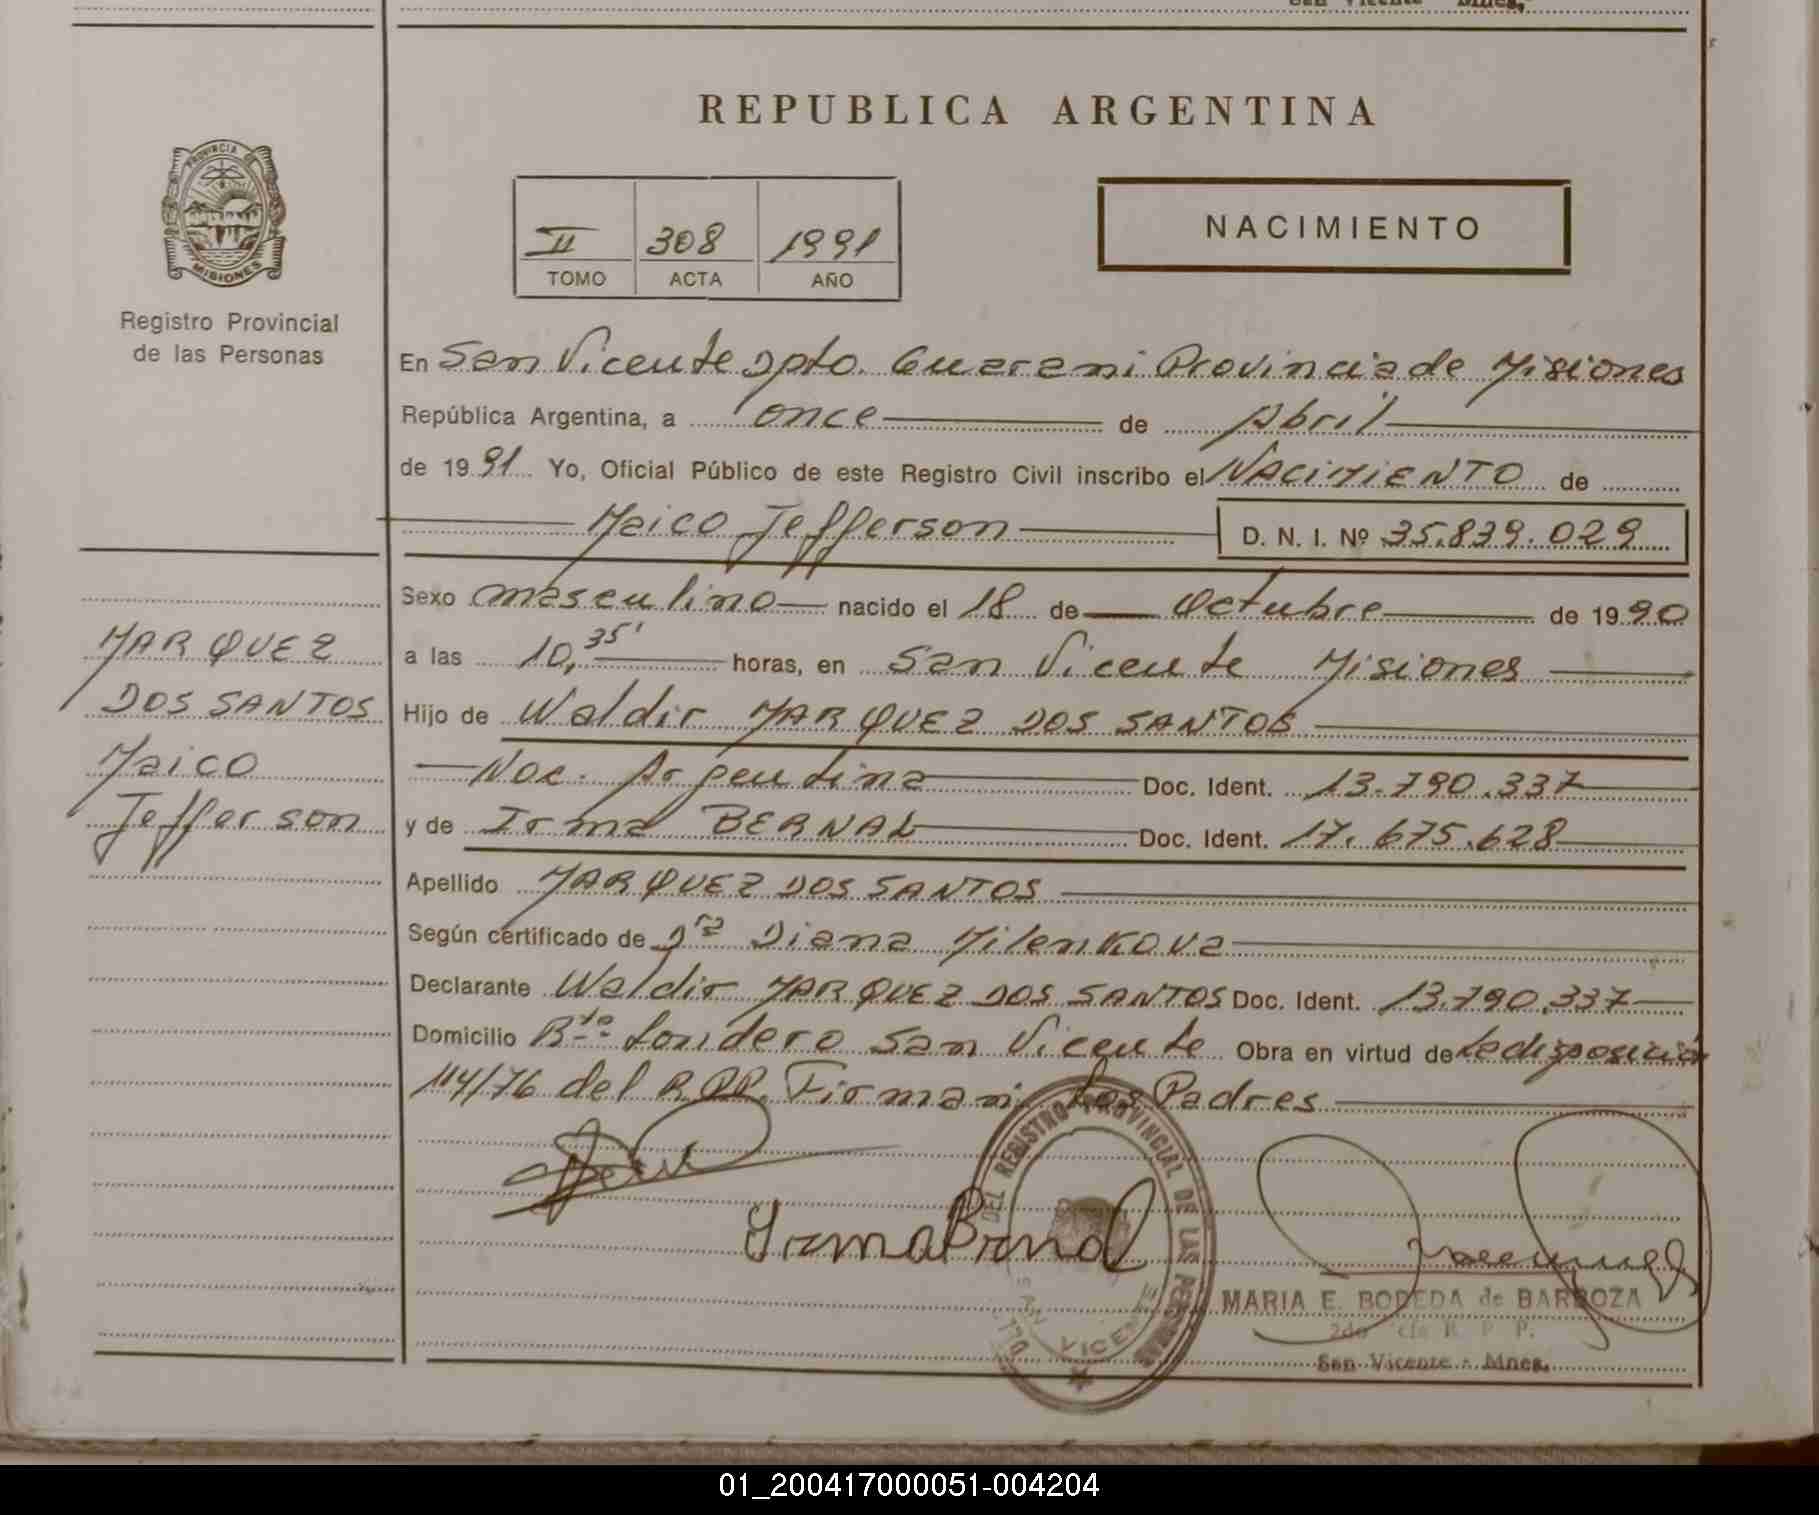 San Vicente Mnes.
REPUBLICA ARGENTINA
PROVINCIA DE
MISIONES
Registro Provincial
de las Personas
II 308 1991
TOMO ACTA AÑO
NACIMIENTO
En San Vicente Dpto. Guarani Provincia de Misiones
República Argentina, a once de Abril
de 1991 Yo, Oficial Público de este Registro Civil inscribo el NACIMIENTO de
Maico Jefferson D. N. I. Nº 35.839.029
Sexo masculino nacido el 18 de Octubre de 1990
a las 10,35' horas, en San Vicente Misiones
Hijo de Waldir MARQUEZ DOS SANTOS
Nac. Argentina Doc. Ident. 13.790.337
y de Irma BERNAL Doc. Ident. 17.675.628
Apellido MARQUEZ DOS SANTOS
Según certificado de Dra Diana Milenkova
Declarante Waldir MARQUEZ DOS SANTOS Doc. Ident. 13.790.337
Domicilio Bto Londero San Vicente Obra en virtud de la disposición
114/76 del R.P.P. Firman: Los Padres
MARQUEZ
DOS SANTOS
Maico
Jefferson
Irma Bernal
DEL REGISTRO PROVINCIAL DE LAS PERSONAS
SAN VICENTE
MARIA E. BOREDA de BARBOZA
R. P. P.
San Vicente - Mnes.
01_200417000051-004204